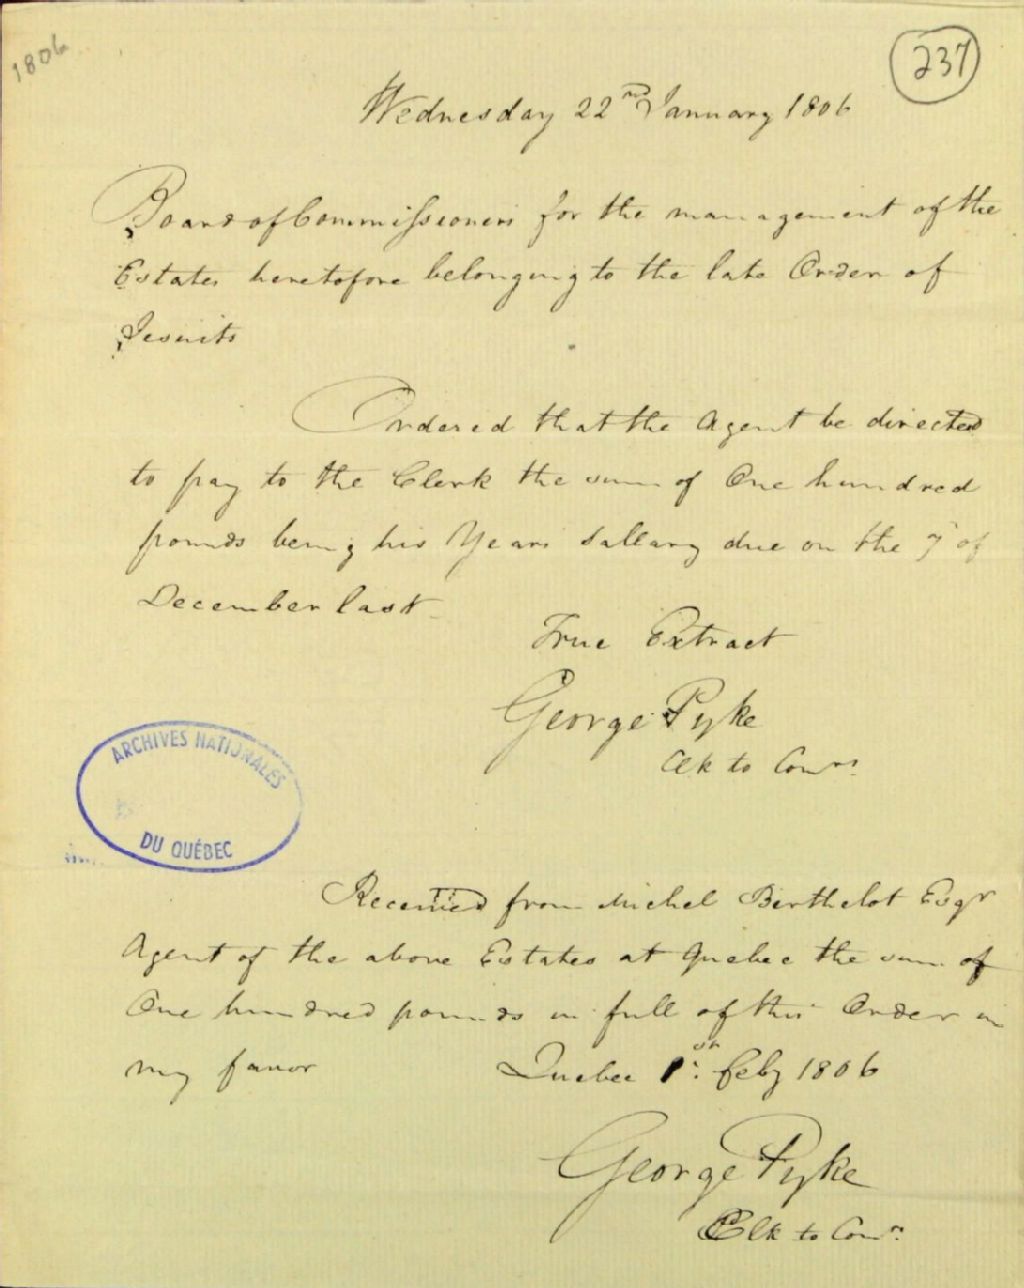 1806
237
Wednesday 22nd January 1806
Board of Commissioners for the management of the
Estates heretofore belonging to the late Order of
Jesuits
Ordered that the Agent be directed
to pay to the Clerk the sum of One hundred
pounds being his Years Sallary due on the 7 of
December last
True Extract
George Pyke
Clk to Comrs
ARCHIVES NATIONALES
DU QUÉBEC
Received from Michel Berthelot Esqr
Agent of the above Estates at Quebec the sum of
One hundred pounds in full of this Order in
my favor Quebec 1st Feby 1806
George Pyke
Clk to Comrs